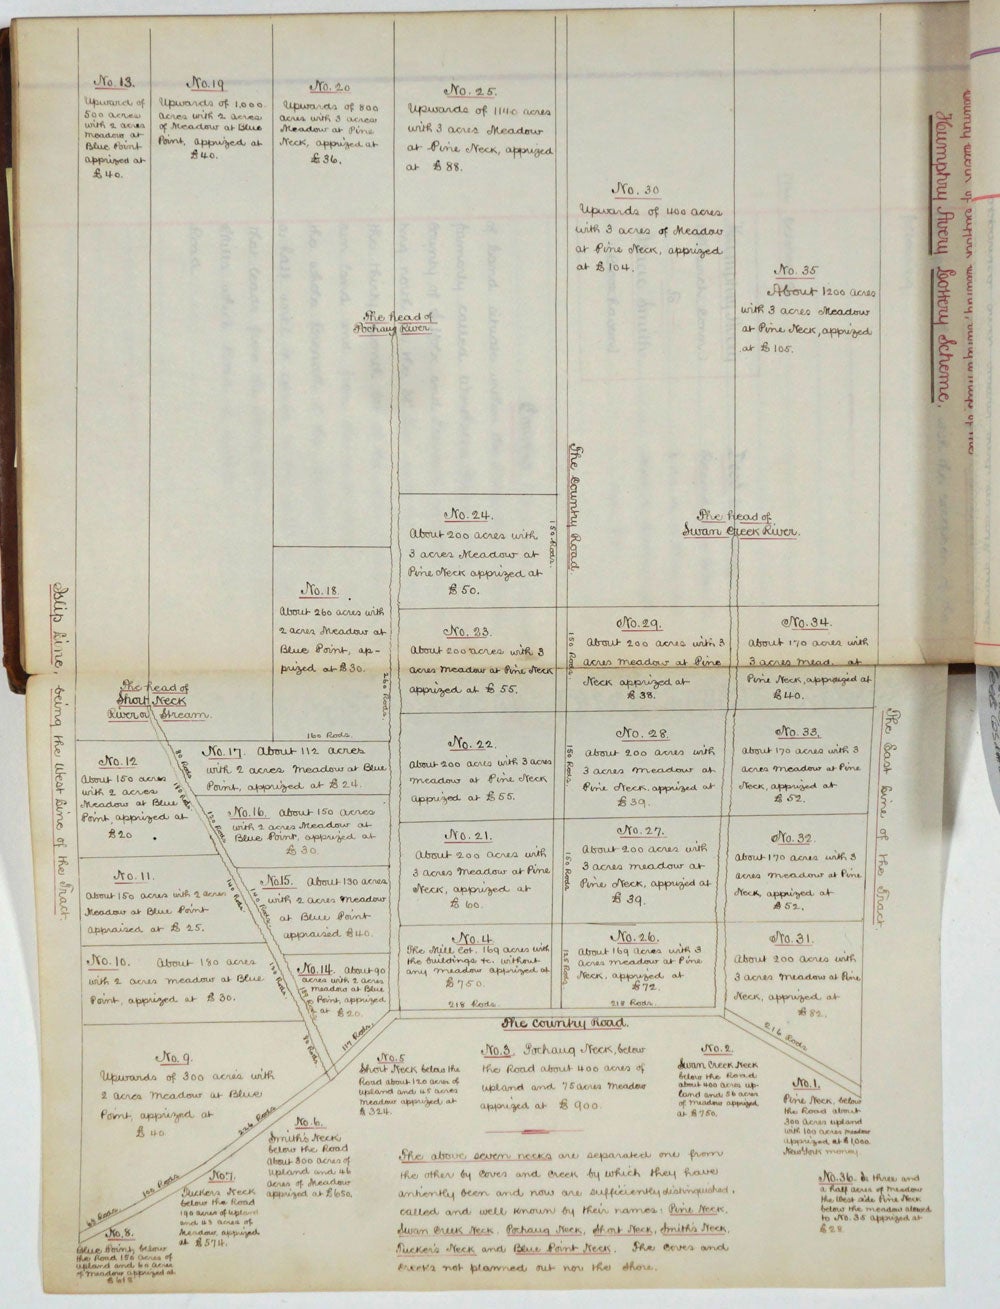 No. 13.
Upward of
500 acres
with 2 acres
meadow at
Blue Point
apprized at
£40.
No. 19
Upwards of 1.000.
acres with 2 acres
of Meadow at Blue
Point, apprized at
£40.
No. 20
Upwards of 800
acres with 3 acres
Meadow at Pine
Neck, apprized at
£36.
No. 25.
Upwards of 1140 acres
with 3 acres Meadow
at Pine Neck, apprized
at £88.
No. 30
Upwards of 400 acres
with 3 acres of Meadow
at Pine Neck, apprized
at £104.
No. 35
About 1200 acres
with 3 acres Meadow
at Pine Neck, apprized
at £105.
Humphry Avery Lottery Scheme,
The head of
Pochaug River.
The Country Road.
150 Rods.
No. 24.
About 200 acres with
3 acres Meadow at
Pine Neck apprized at
£50.
The head of
Swan Creek River.
No. 18.
About 260 acres with
2 acres Meadow at
Blue Point, ap-
prized at £30.
260 Rods.
160 Rods.
No. 23.
About 200 acres with 3
acres Meadow at Pine Neck
apprized at £55.
150 Rods.
No. 29.
About 200 acres with 3
acres meadow at Pine
Neck apprized at
£38.
No. 34.
About 170 acres with
3 acres mead. at
Pine Neck, apprized at
£40.
Islip Line, being the West Line of the Tract.
The East Line of the Tract
The head of
Short Neck
River or Stream.
No. 12
About 150 acres
with 2 acres
Meadow at Blue
Point, apprized at
£20
No. 17. About 112 acres
with 2 acres Meadow at Blue
Point, apprized at £24.
No. 22.
About 200 acres with 3 acres
meadow at Pine Neck
apprized at £55.
150 Rods.
No. 28.
About 200 acres with
3 acres meadow at
Pine Neck, apprized at
£39.
No. 33.
About 170 acres with 3
acres meadow at Pine
Neck, apprized at
£52.
No. 16. About 150 acres
with 2 acres Meadow at
Blue Point, apprized at
£30.
No. 21.
About 200 acres with
3 acres Meadow at Pine
Neck, apprized at
£60.
150 Rods
No. 27.
About 200 acres with
3 acres meadow at
Pine Neck, apprized at
£39.
No. 32.
About 170 acres with 3
acres meadow at Pine
Neck, apprized at
£52.
No. 11.
About 150 acres with 2 acres
Meadow at Blue Point
appraised at £25.
No. 15. About 130 acres
with 2 acres Meadow
at Blue Point
appraised £40.
No. 10. About 180 acres
with 2 acres meadow at Blue
Point, apprized at £30.
No. 14. About 90
acres with 2 acres
meadow at Blue
Point, apprized
at £20.
No. 4.
The Mill Lot, 169 acres with
the buildings &c. without
any meadow apprized at
£750.
218 Rods.
125 Rods
No. 26.
About 169 acres with 3
acres meadow at Pine
Neck, apprized at
£72.
218 Rods.
No. 31.
About 200 acres with
3 acres Meadow at Pine
Neck, apprized at
£82.
The Country Road.
117 Rods
216 Rods
No. 9.
Upwards of 300 acres with
2 acres Meadow at Blue
Point, apprized at
£40.
No. 5
Short Neck below the
Road about 120 acres of
upland and 45 acres
Meadow apprized at
£324.
No. 3. Pochaug Neck, below
the Road about 400 acres of
upland and 75 acres Meadow
apprized at £900.
No. 2.
Swan Creek Neck
below the Road,
about 400 acres up-
land and 56 acres
of Meadow apprized
at £750.
No. 1.
Pine Neck, below
the Road about
300 acres upland
with 100 acres meadow
apprized at £1,000.
New York money.
224 Rods
No. 6.
Smith's Neck
below the Road
About 300 acres of
upland and 46
acres of Meadow
apprized at £650.
No. 7.
Tuckers Neck
below the Road
190 acres of upland
and 43 acres of
Meadow, apprized
at £574.
No. 8.
Blue Point, below
the Road 150 acres of
upland and 60 acres
of meadow apprized at
£618
The above seven necks are separated one from
the other by Coves and Creek by which they have
antiently been and now are sufficiently distinguished,
called and well known by their names: Pine Neck,
Swan Creek Neck. Pochaug Neck, Short Neck, Smith's Neck,
Tucker's Neck and Blue Point Neck. The Coves and
Creek's not planned out nor the Shore.
No. 36. Is three and
a half acres of meadow
the West side Pine Neck
below the meadow allowed
to No. 35 apprized at
£28